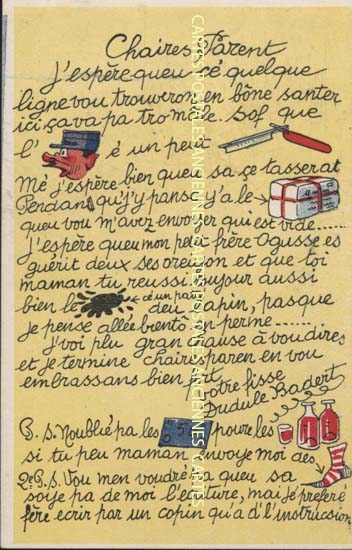 Chaires Parent
J'espère queu cé quelque
ligne vou trouveron en bône santer
ici ça va pa tro male. Sof que
l' é un peut
Mé j'espère bien queu sa çe tasserat
Pendant qu'j'y pans y'a le
queu vou m'avez envoyer qui est vide.....
j'espère queu mon petit frère Ogusse es
guérit deux ses oreillon et que toi
maman tu reussi toujour aussi
bien le cé un paté deu lapin, pasque
je pense allée bento en perme......
J'voi plu gran chause à vou dires
et je termine chaires paren en vou
embrassans bien fort
votre fisse
Dudule Badert
P.S. N'oublié pa les 5 F poure les
si tu peu maman envoye moi des
2e P.S. Vou men voudré pa queu sa
soye pa de moi l'ecriture, mai je préfère
fère ecrir par un copin qu'a d'l'instrucsion
CARTES POSTALES ANCIENNES